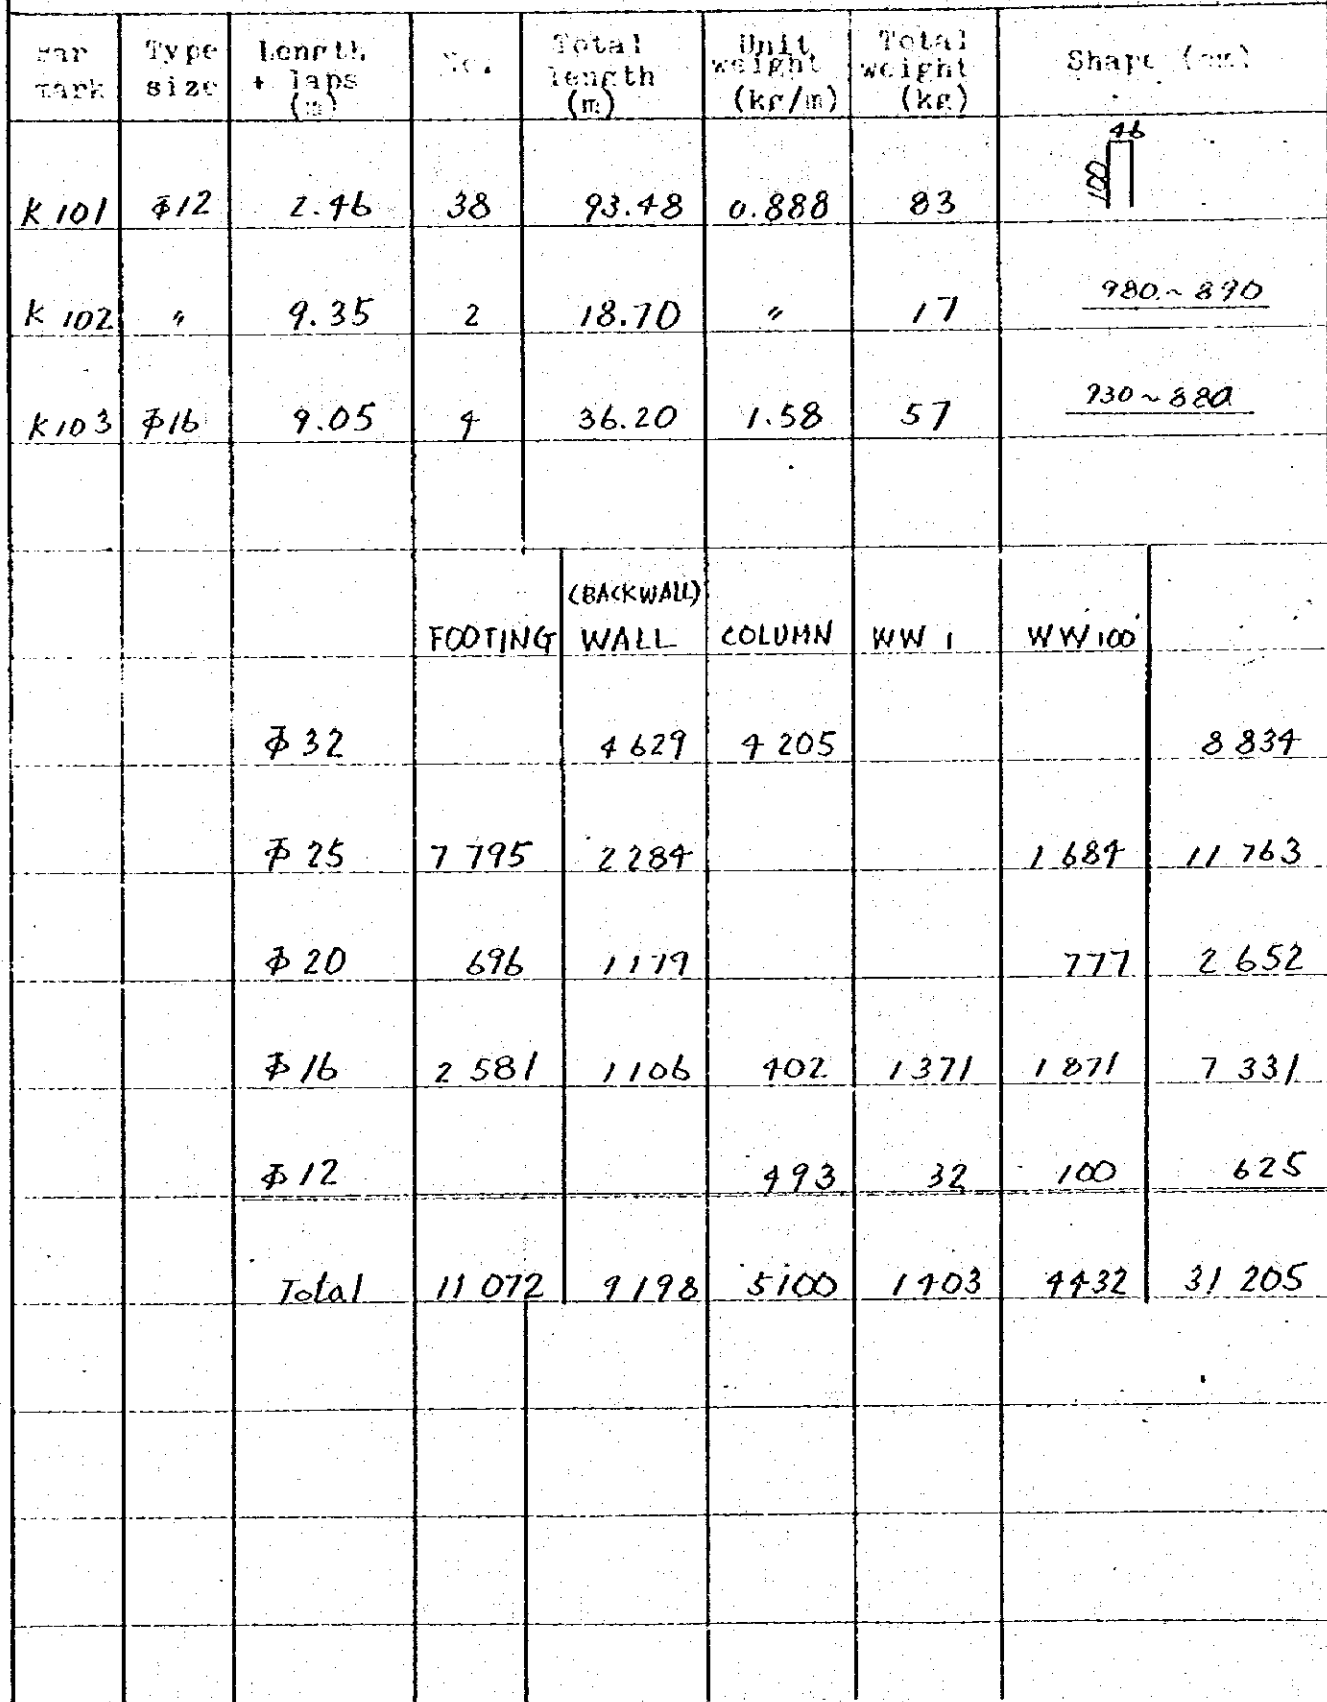 Bar mark Type size Length + laps (m) No. Total length (m) Unit weight (kg/m) Total weight (kg) Shape (cm)
46
100
K 101 Φ12 2.46 38 93.48 0.888 83
K 102 〃 9.35 2 18.70 〃 17 980~890
K 103 Φ16 9.05 4 36.20 1.58 57 930~880
(BACKWALL)
FOOTING WALL COLUMN WW 1 WW 100
Φ 32 4 629 4 205 8 834
Φ 25 7 795 2 284 1 684 11 763
Φ 20 696 1179 777 2 652
Φ 16 2 581 1106 402 1371 1 871 7 331
Φ 12 493 32 100 625
Total 11 072 9 198 5100 1403 4432 31 205